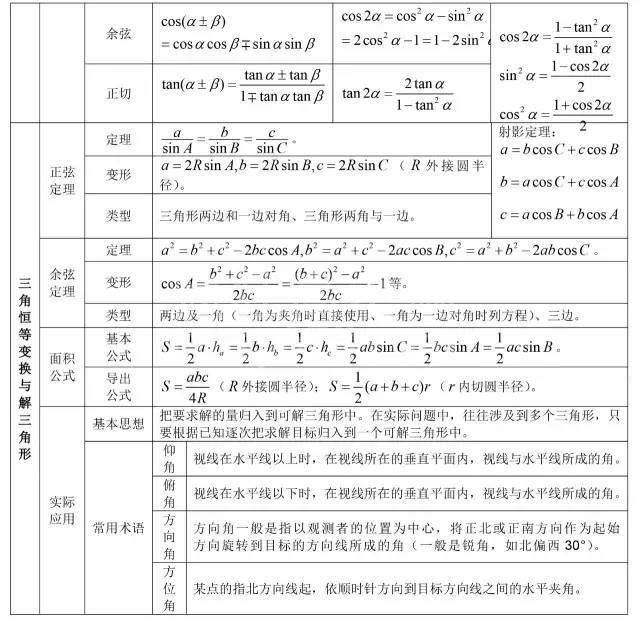 余弦
cos(α±β)
=cosαcosβ∓sinαsinβ
cos2α=cos²α−sin²α
=2cos²α−1=1−2sin²α
cos2α=\frac{1−tan²α}{1+tan²α}
sin²α=\frac{1−cos2α}{2}
cos²α=\frac{1+cos2α}{2}
正切
tan(α±β)=\frac{tanα±tanβ}{1∓tanαtanβ}
tan2α=\frac{2tanα}{1−tan²α}
三角恒等变换与解三角形
正弦
定理
定理
\frac{a}{sinA}=\frac{b}{sinB}=\frac{c}{sinC}。
变形
a=2RsinA,b=2RsinB,c=2RsinC（R外接圆半
径）。
类型
三角形两边和一边对角、三角形两角与一边。
射影定理：
a=bcosC+ccosB
b=acosC+ccosA
c=acosB+bcosA
余弦
定理
定理
a²=b²+c²−2bccosA,b²=a²+c²−2accosB,c²=a²+b²−2abcosC。
变形
cosA=\frac{b²+c²−a²}{2bc}=\frac{(b+c)²−a²}{2bc}−1等。
类型
两边及一角（一角为夹角时直接使用、一角为一边对角时列方程）、三边。
面积
公式
基本
公式
S=\frac{1}{2}a·hₐ=\frac{1}{2}b·h_b=\frac{1}{2}c·h_c=\frac{1}{2}absinC=\frac{1}{2}bcsinA=\frac{1}{2}acsinB。
导出
公式
S=\frac{abc}{4R}（R外接圆半径）；S=\frac{1}{2}(a+b+c)r（r内切圆半径）。
实际
应用
基本思想
把要求解的量归入到可解三角形中。在实际问题中，往往涉及到多个三角形，只
要根据已知逐次把求解目标归入到一个可解三角形中。
常用术语
仰
角
视线在水平线以上时，在视线所在的垂直平面内，视线与水平线所成的角。
俯
角
视线在水平线以下时，在视线所在的垂直平面内，视线与水平线所成的角。
方
向
角
方向角一般是指以观测者的位置为中心，将正北或正南方向作为起始
方向旋转到目标的方向线所成的角（一般是锐角，如北偏西30°）。
方
位
角
某点的指北方向线起，依顺时针方向到目标方向线之间的水平夹角。